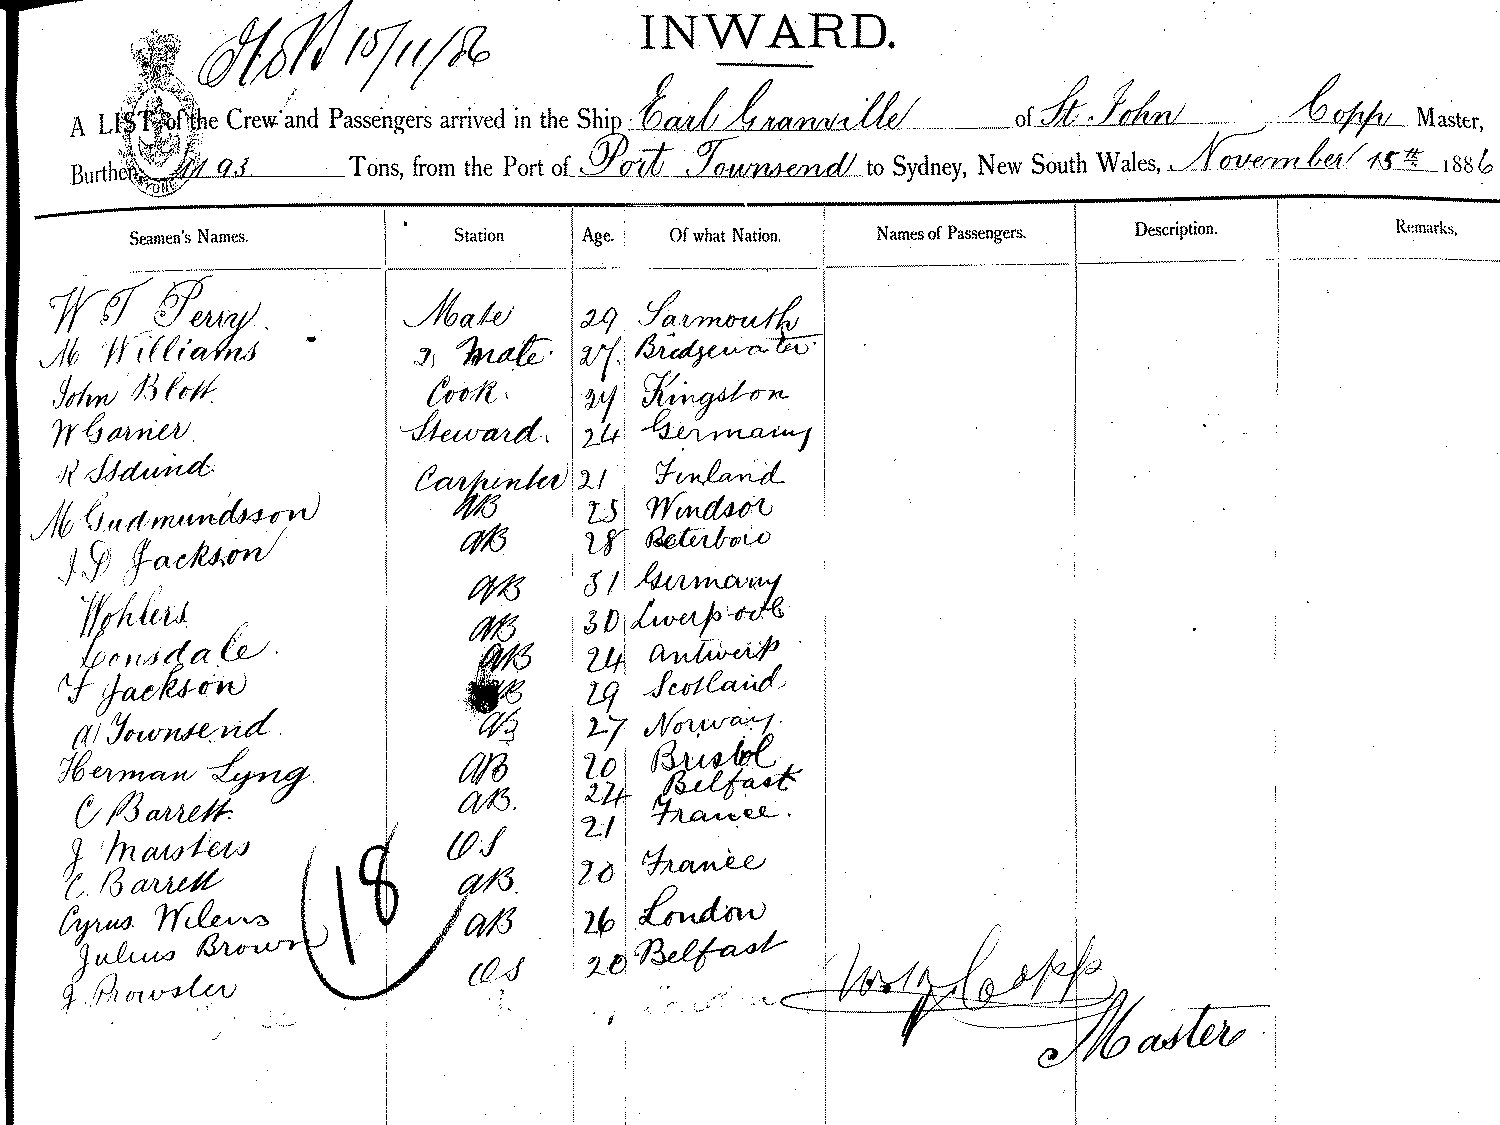 15/11/86
INWARD.
A LIST of the Crew and Passengers arrived in the Ship Earl Granville of St. John Copp Master,
Burthen 1193 Tons, from the Port of Port Townsend to Sydney, New South Wales, November 15th 1886
Seamen's Names. Station Age. Of what Nation. Names of Passengers. Description. Remarks,
W T Perry Mate 29 Yarmouth
M Williams 2 Mate 27 Bridgewater
John Blott Cook 27 Kingston
W Garner Steward. 24 Germany
R Carpenter 21 Finland
M Gudmundsson AB 25 Windsor
J. D Jackson AB 28 Peterboro
Wohlers AB 31 Germany
Lonsdale AB 30 Liverpool
F Jackson AB 24 Antwerp
A Townsend AB 29 Scotland
Herman Lyng AB 27 Norway.
C Barrett AB 20 Bristol
J Marsters AB. 24 Belfast
C. Barrett OS 21 France.
Cyrus Wilens AB 20 France
Julius Brown AB 26 London
J. Prowster OS 20 Belfast
18
Copp
Master